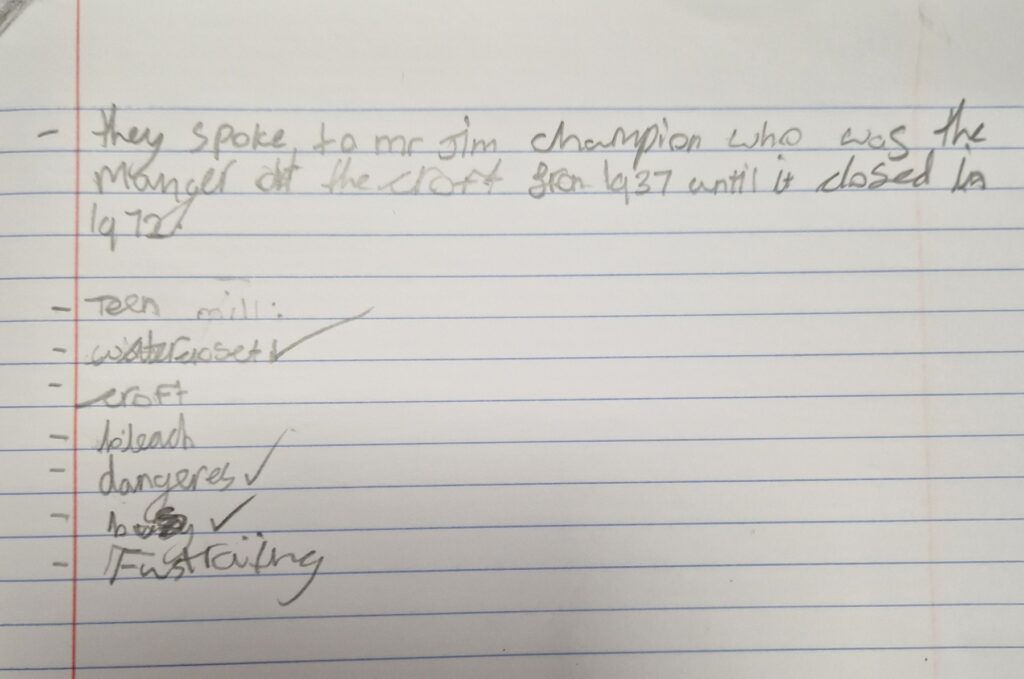 - they spoke to mr Jim champion who was the
manger at the croft from 1937 until it closed in
1972.
- Teen mill:
- watercloset ✓
- croft
- bleach
- dangeres ✓
- busy ✓
-